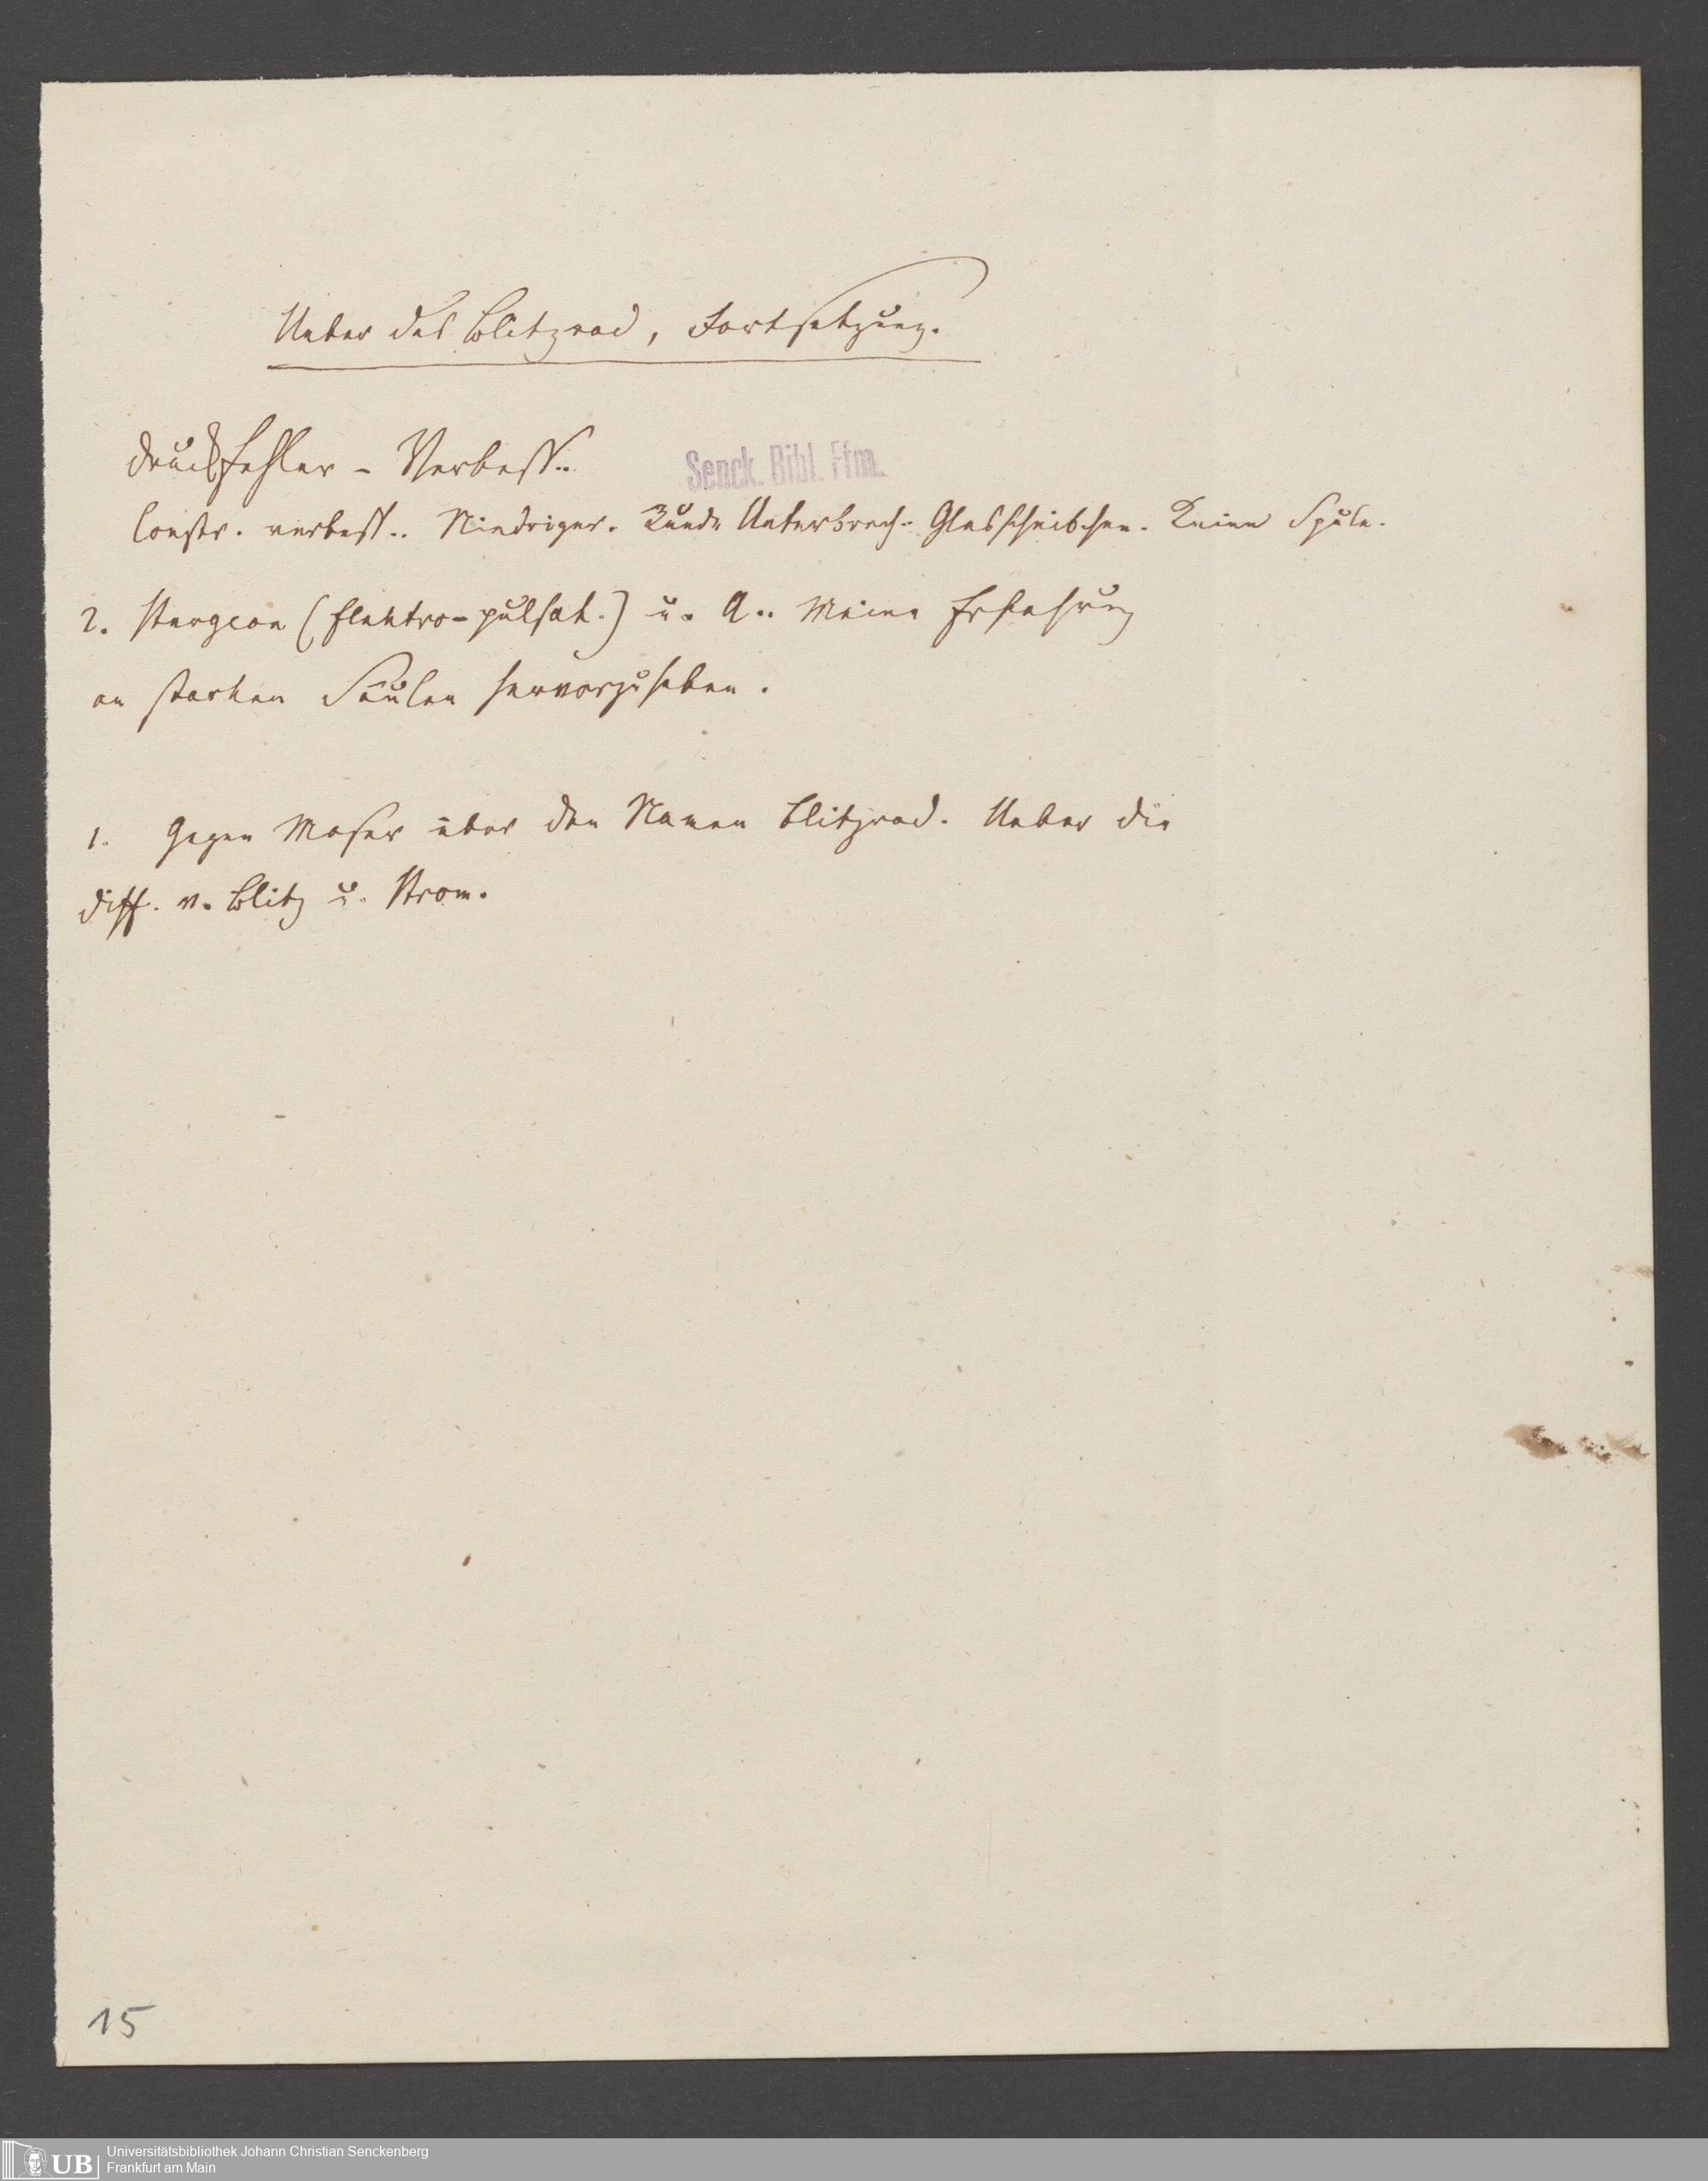 Ueber das Blitzrad, Fortsetzung.
Druckfehler - Verbess..
Senck. Bibl. Ffm.
Constr. verbess.. Niedriger. Runde Unterbrech.. Glasscheibchen. Keine Spule.
2. Sturgeon (Elektro-pulsat.) u. A.. Meine Erfahrung
an starken Säulen hervorzuheben.
1. Gegen Moser über den Namen Blitzrad. Ueber die
Diff. v. Blitz u. Strom.
15
UB Universitätsbibliothek Johann Christian Senckenberg
Frankfurt am Main